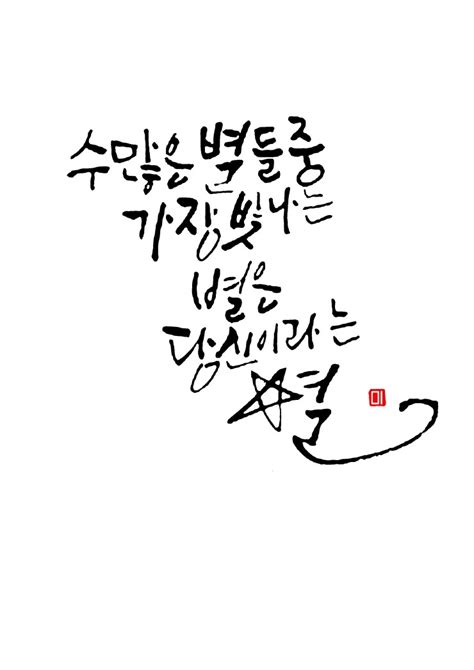 수많은 별들중
가장 빛나는
별은
당신이라는
별
미